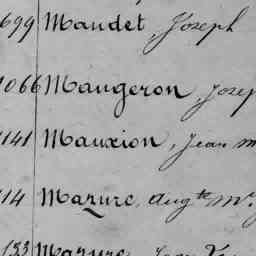 699 Maudet, Joseph
1066 Maugeron, Josep
1141 Mauxion, Jean m
114 Mazure, Augte Mie
133 Mazure